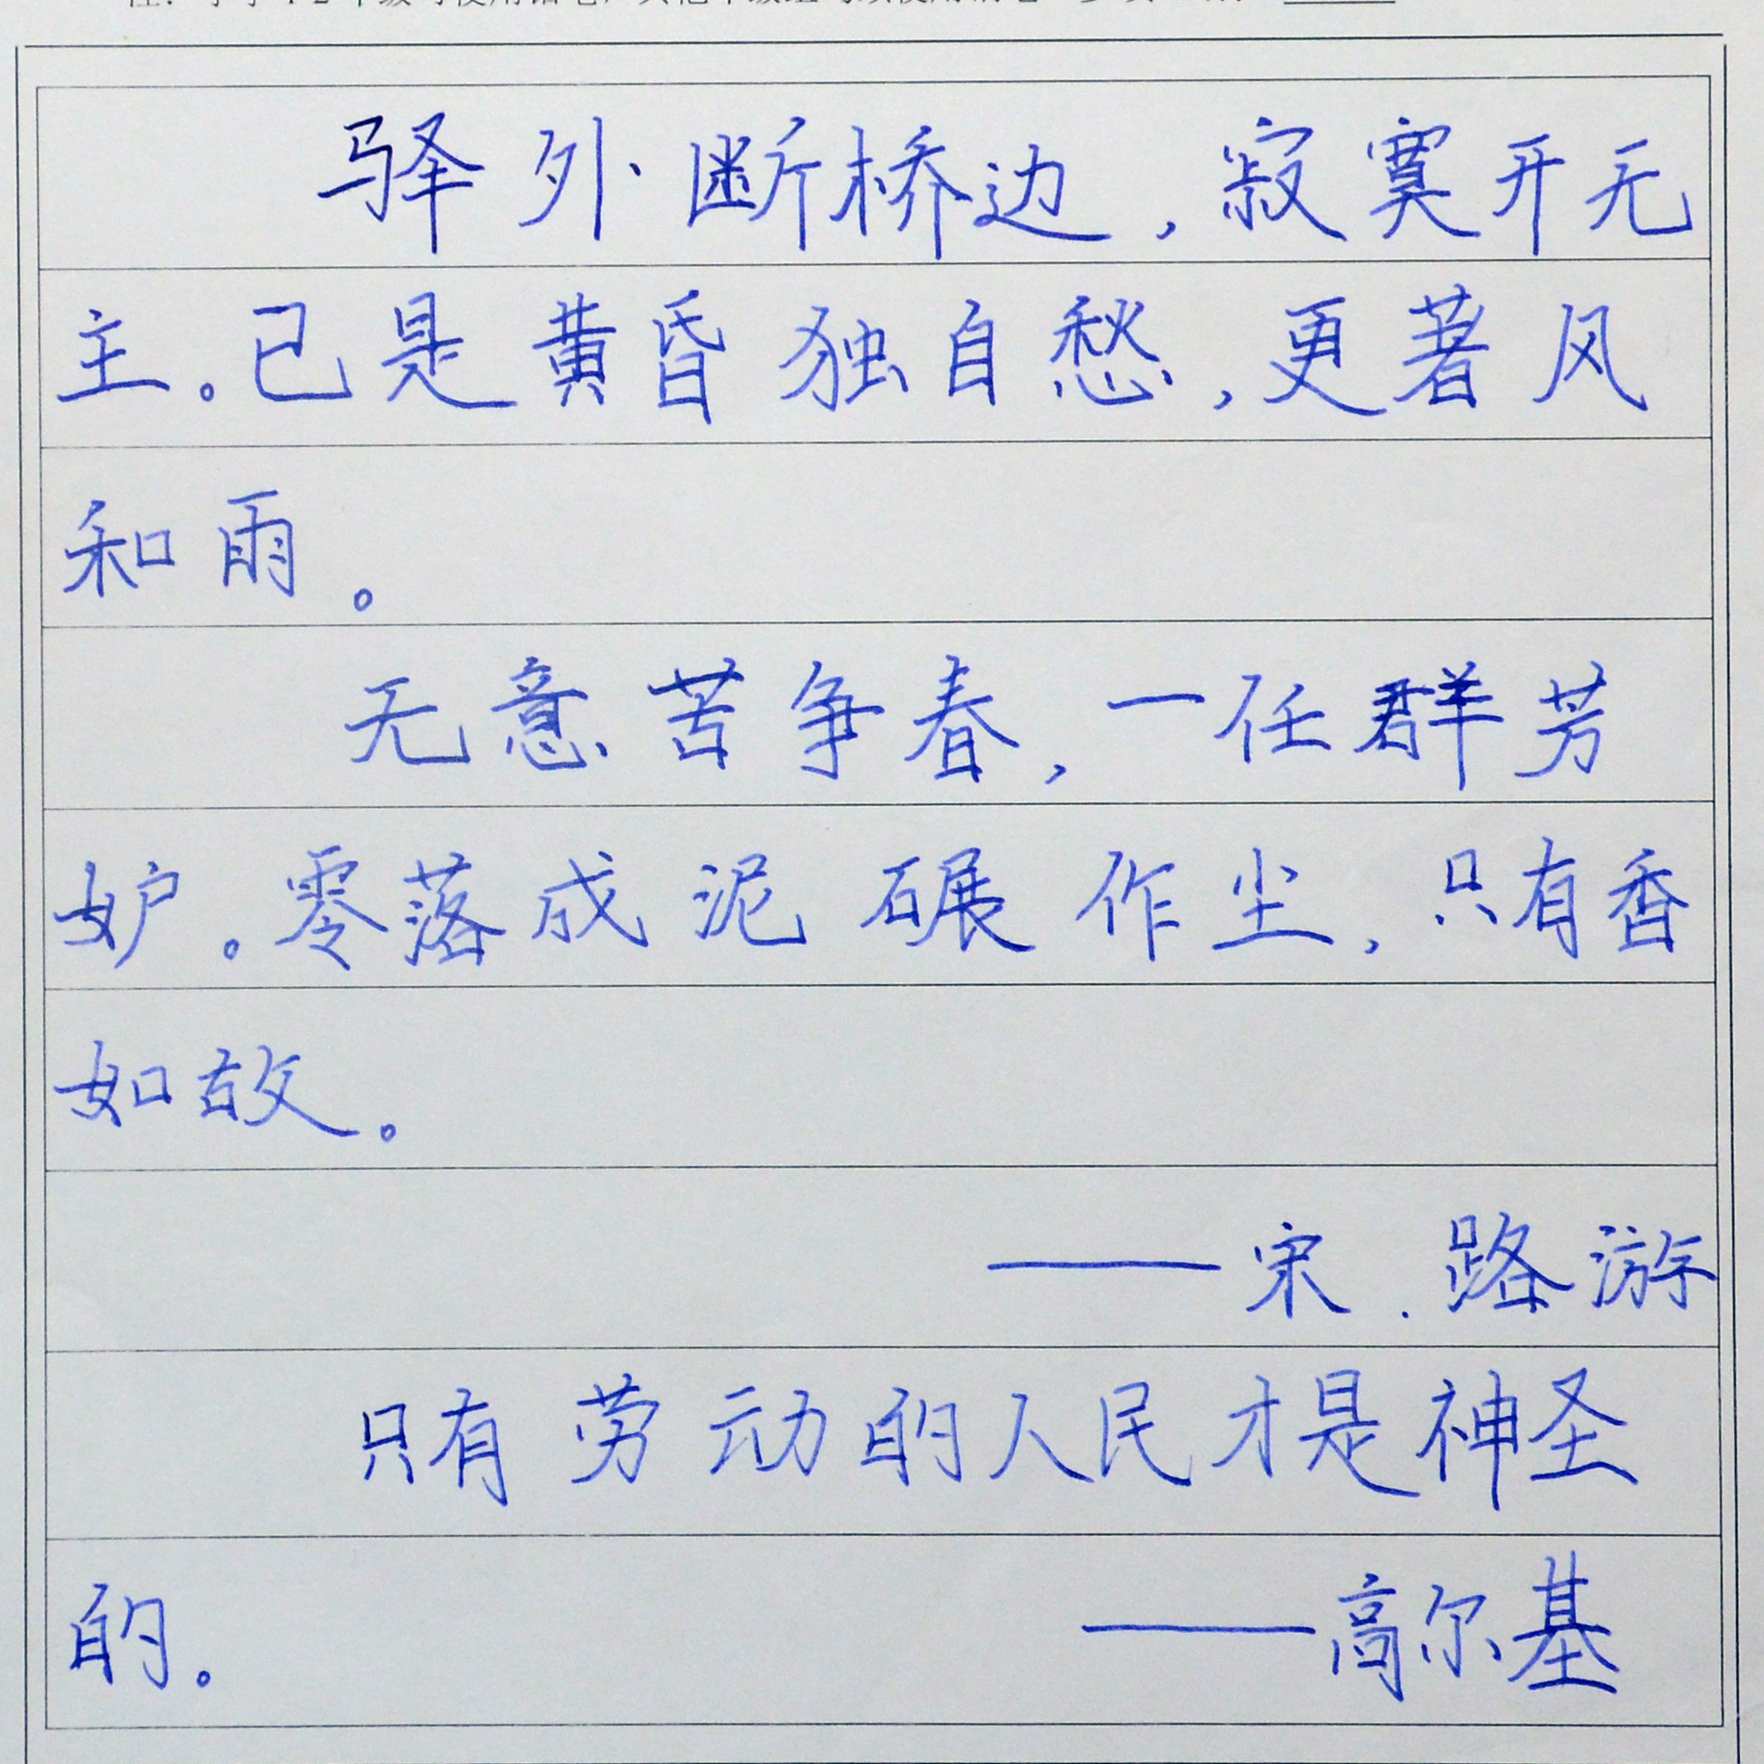 驿外断桥边，寂寞开无
主。已是黄昏独自愁，更著风
和雨。
无意苦争春，一任群芳
妒。零落成泥碾作尘，只有香
如故。
——宋.路游
只有劳动的人民才是神圣
的。——高尔基